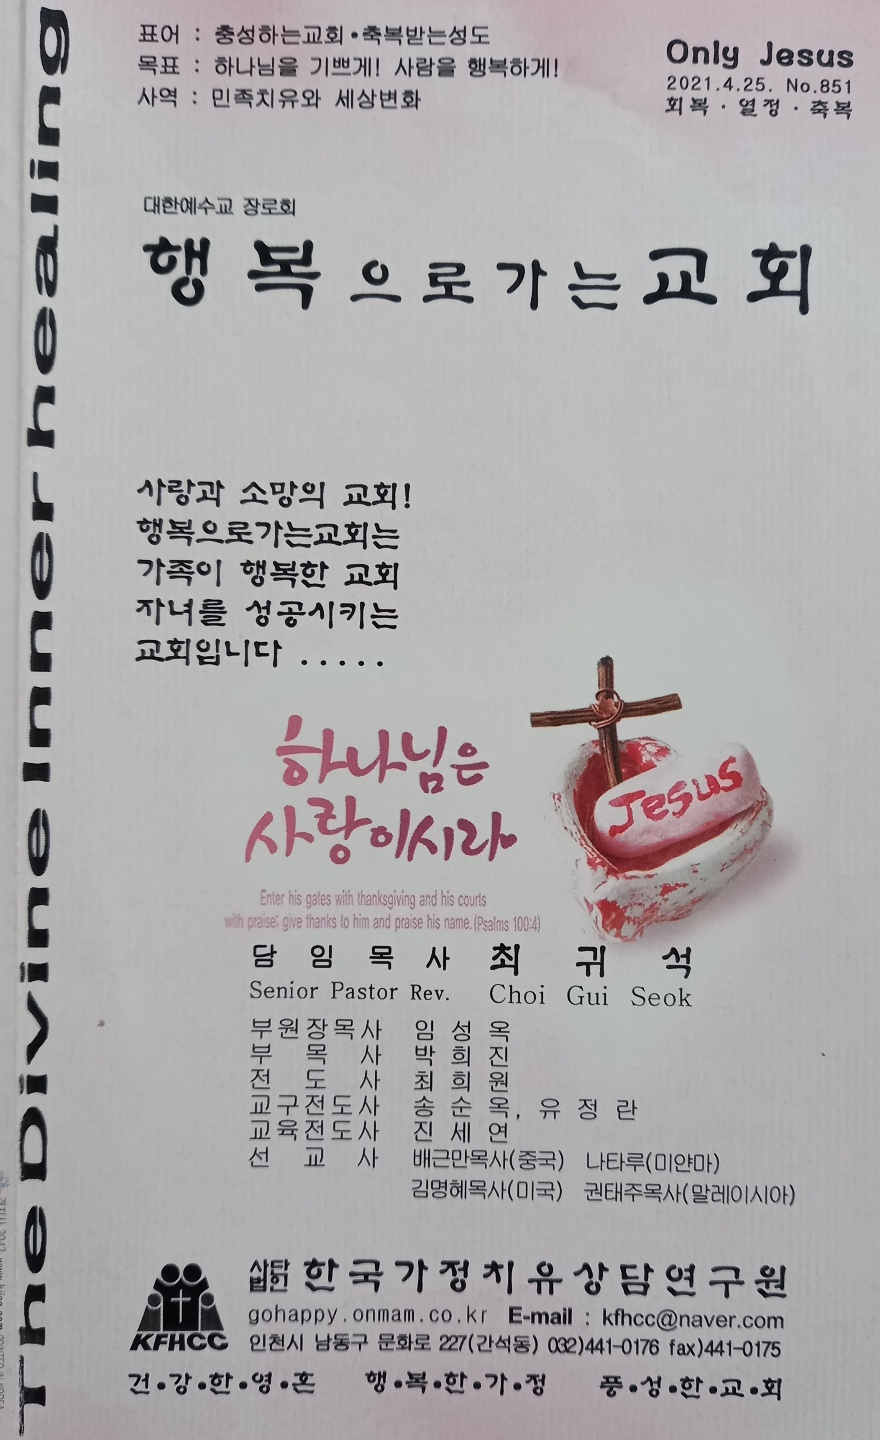 The Divine Inner healing
표어 : 충성하는교회•축복받는성도
목표 : 하나님을 기쁘게! 사람을 행복하게!
사역 : 민족치유와 세상변화
Only Jesus
2021.4.25. No.851
회복 · 열정 · 축복
대한예수교 장로회
행복으로가는교회
사랑과 소망의 교회!
행복으로가는교회는
가족이 행복한 교회
자녀를 성공시키는
교회입니다 .....
하나님은
사랑이시라
Jesus
Enter his gates with thanksgiving and his courts
with praise; give thanks to him and praise his name.(Psalms 100:4)
담 임 목 사 최 귀 석
Senior Pastor Rev. Choi Gui Seok
부원장목사 임 성 옥
부 목 사 박 희 진
전 도 사 최 희 원
교구전도사 송 순 옥, 유 정 란
교육전도사 진 세 연
선 교 사 배근만목사(중국) 나타루(미얀마)
김명혜목사(미국) 권태주목사(말레이시아)
사단법인 한국가정치유상담연구원
KFHCC
gohappy.onmam.co.kr E-mail : kfhcc@naver.com
인천시 남동구 문화로 227(간석동) 032)441-0176 fax)441-0175
건•강•한•영•혼 행•복•한•가•정 풍•성•한•교•회